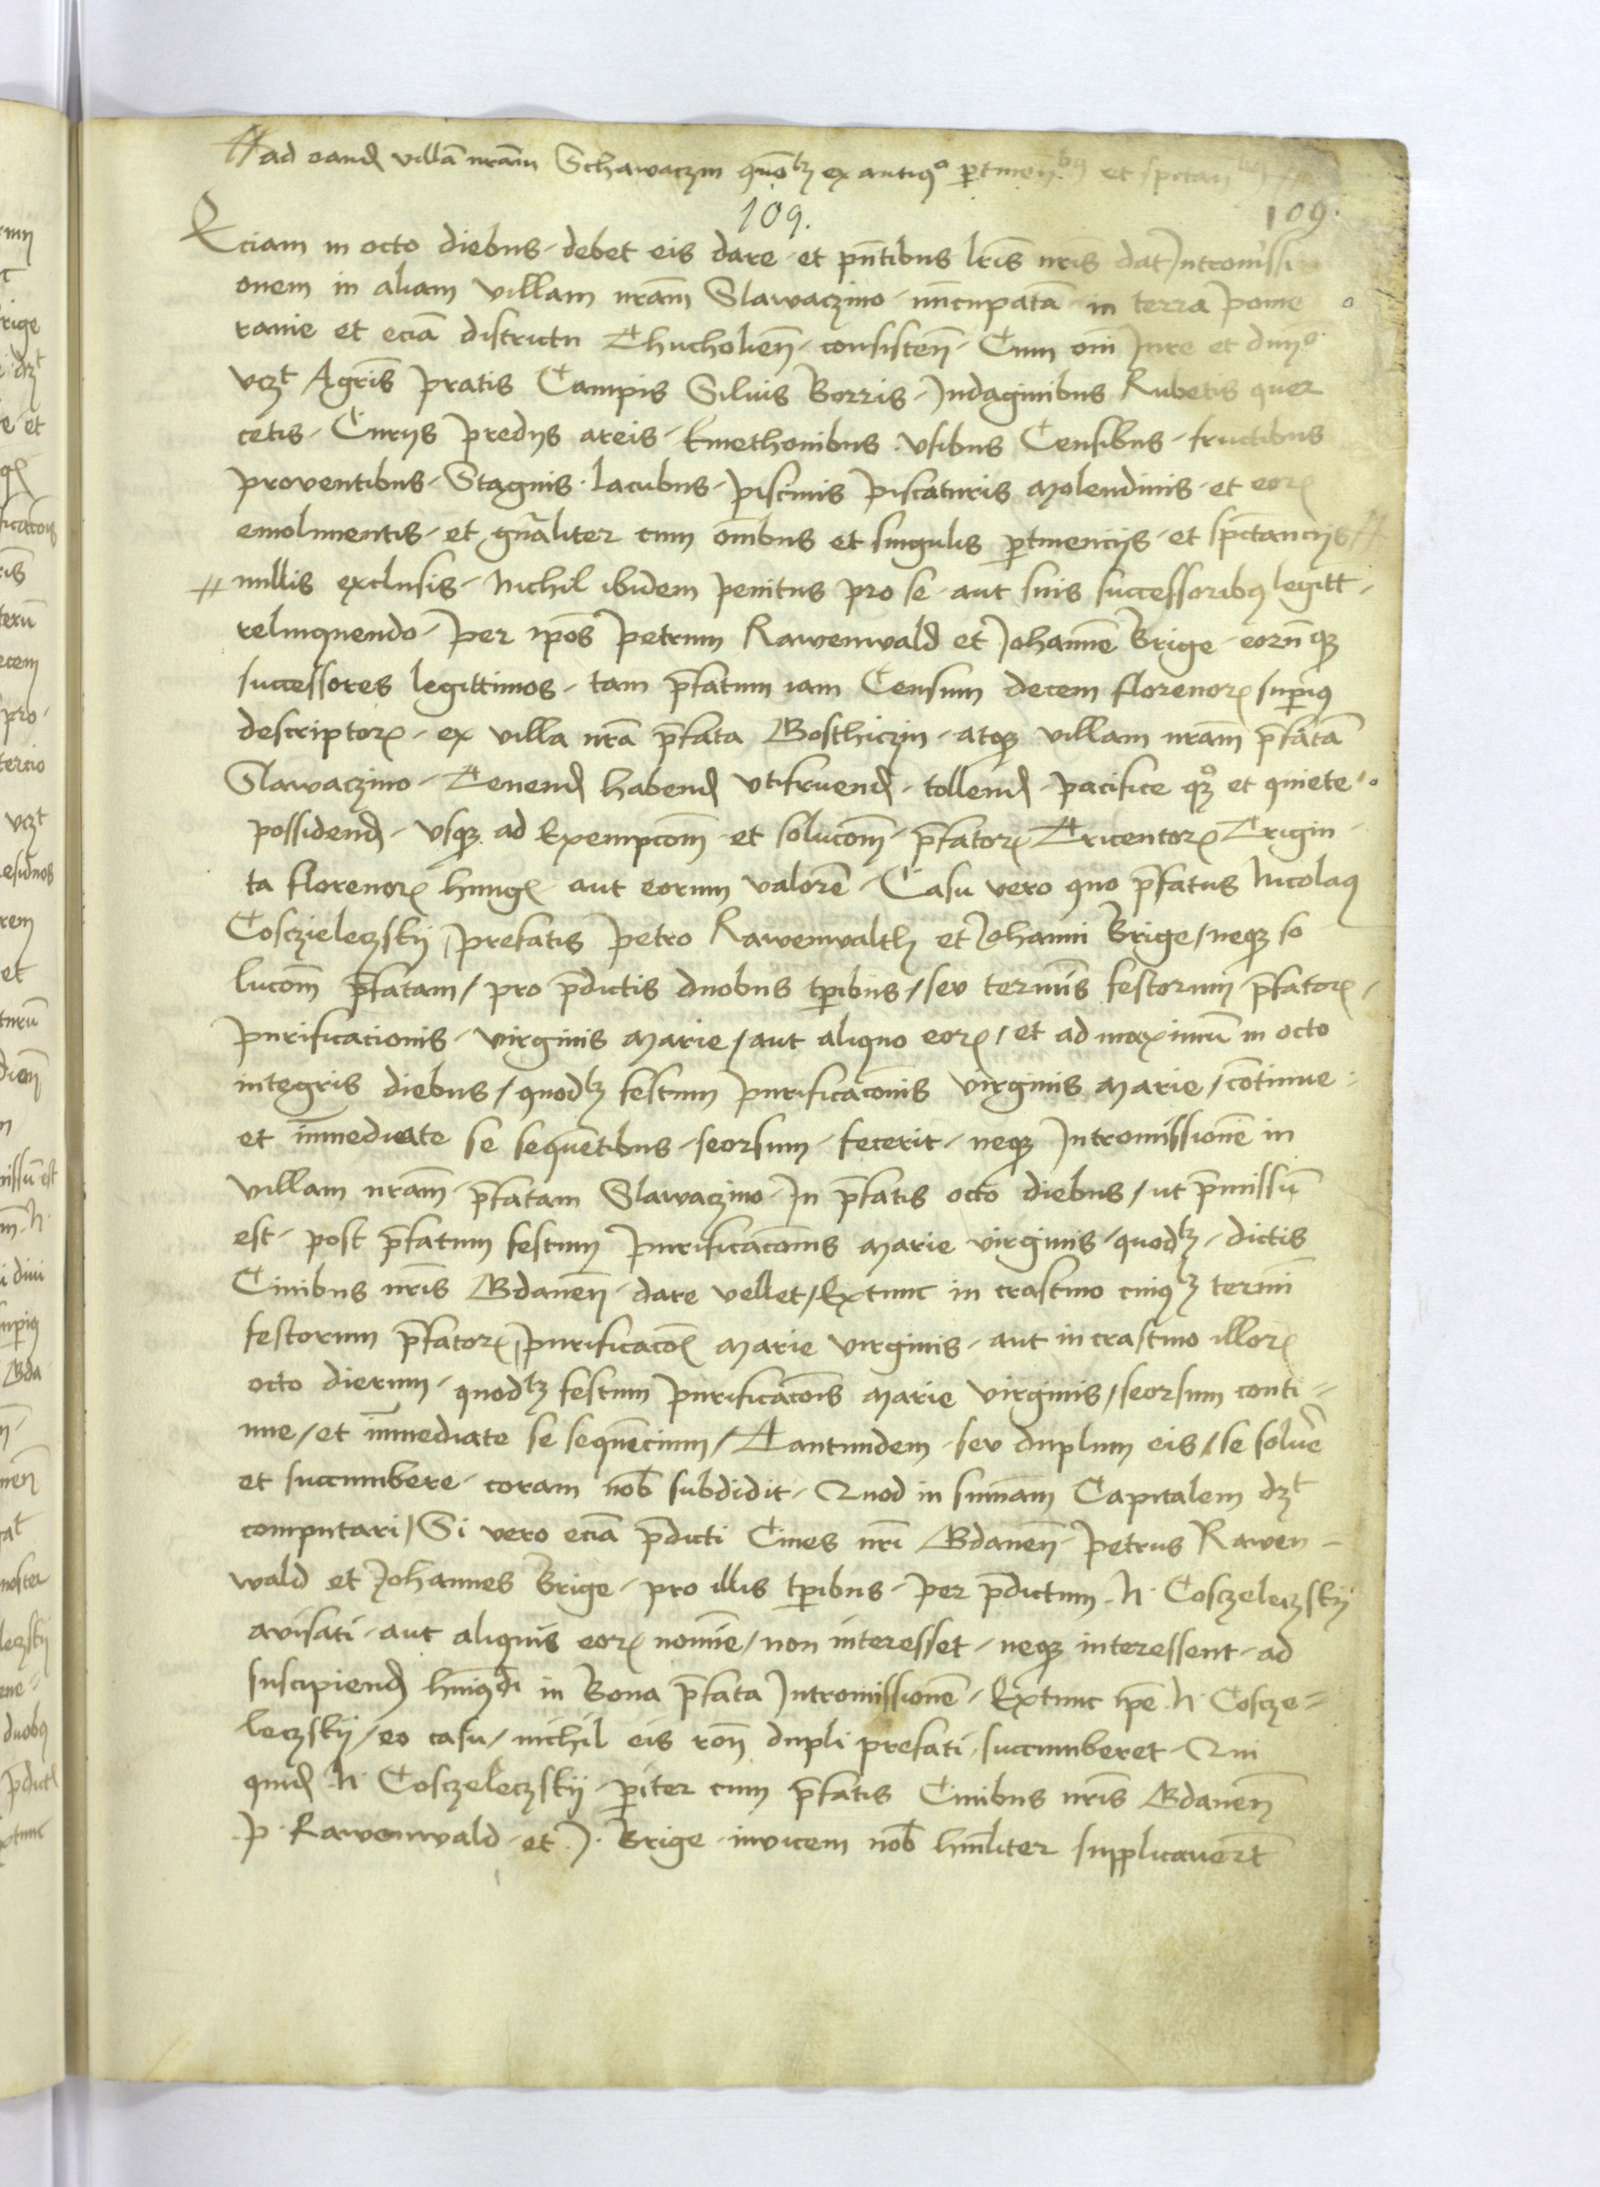 ad eand villā nrām Schawaczin quōlz ex antiqo ptinen bq et spectan
109. 109.
Eciam in octo diebus debet eis dare et pntibus lris nris dat Intromissi
onem in aliam villam nram Slawaczino nuncupatā in terra pome
ranie et eciā districtu Thucholien consisten Cum oni Jure et dnio
vczt Agris pratis Campis Siluis Borris Indaginibus Rubetis quer
cetis Curiis prediis areis kmethonibus vsibus Censibus fructibus
proventibus Stagnis lacubus piscinis piscaturis molendinis et eor
emolimentis et gnāliter cum omibus et singulis ptinenciis et spectanciis
nullis exclusis Nichil ibidem penitus pro se aut suis successoribq legitt
relinquendo per ipos petrum Rawenwald et Johannē Brige eorūqz
successores legittimos tam pfatum iam Censum decem florenor supiq
descriptor ex villa nrā pfata Gosthiczin atqz villam nram pfatā
Slawaczino Tenend habend vtifruend tollend pacifice qz et quiete
possidend vsqz ad Exempcom et solucom pfator Tricentor Trigin
ta florenor hung aut eorum valorē Casu vero quo pfatus Nicolaq
Cosczieleczskij prefatis petro Rawenwalth et Johanni Brige neqz so
lucom pfatam pro pdictis duobus tpibus seu terminis festorum pfator
purificationis virginis marie aut aliquo eor et ad maximū in octo
integris diebus quodlz festum purificacōnis virginis marie cōtinue
et immediate se sequētibus seorsum fecerit neqz Intromissionē in
villam nram pfatam Slawaczino In pfatis octo diebus ut pmissū
est post pfatum festum purificacōnis marie virginis quodlz dictis
Ciuibus nris Gdanen dare vellet Extunc in crastino cuiqlz termī
festorum pfator purificacō marie virginis aut in crastino illor
octo dierum quodlz festum purificacōis marie virginis seorsum conti
nue et immediate se sequēcium Tantundem seu duplum eis se solue
et succumbere coram nob subdidit Quod in summam Capitalem dzt
computari Si vero eciā pdicti Ciues nri Gdanen petrus Rawen
wald et Johannes Brige pro illis tpibus per pdictum N Cosczeleczskij
avisati aut aliquis eor nomine non interesset neqz interessent ad
suscipiend huiqdi in Bona pfata Intromissionē Extunc ipe N Coscze
leczskij eo casu nichil eis ron dupli prefati succumberet Qui
quid N Cosczeleczskij piter cum pfatis Ciuibus nris Gdanen
P Rawenwald et J Brige invicem nob humliter supplicauert